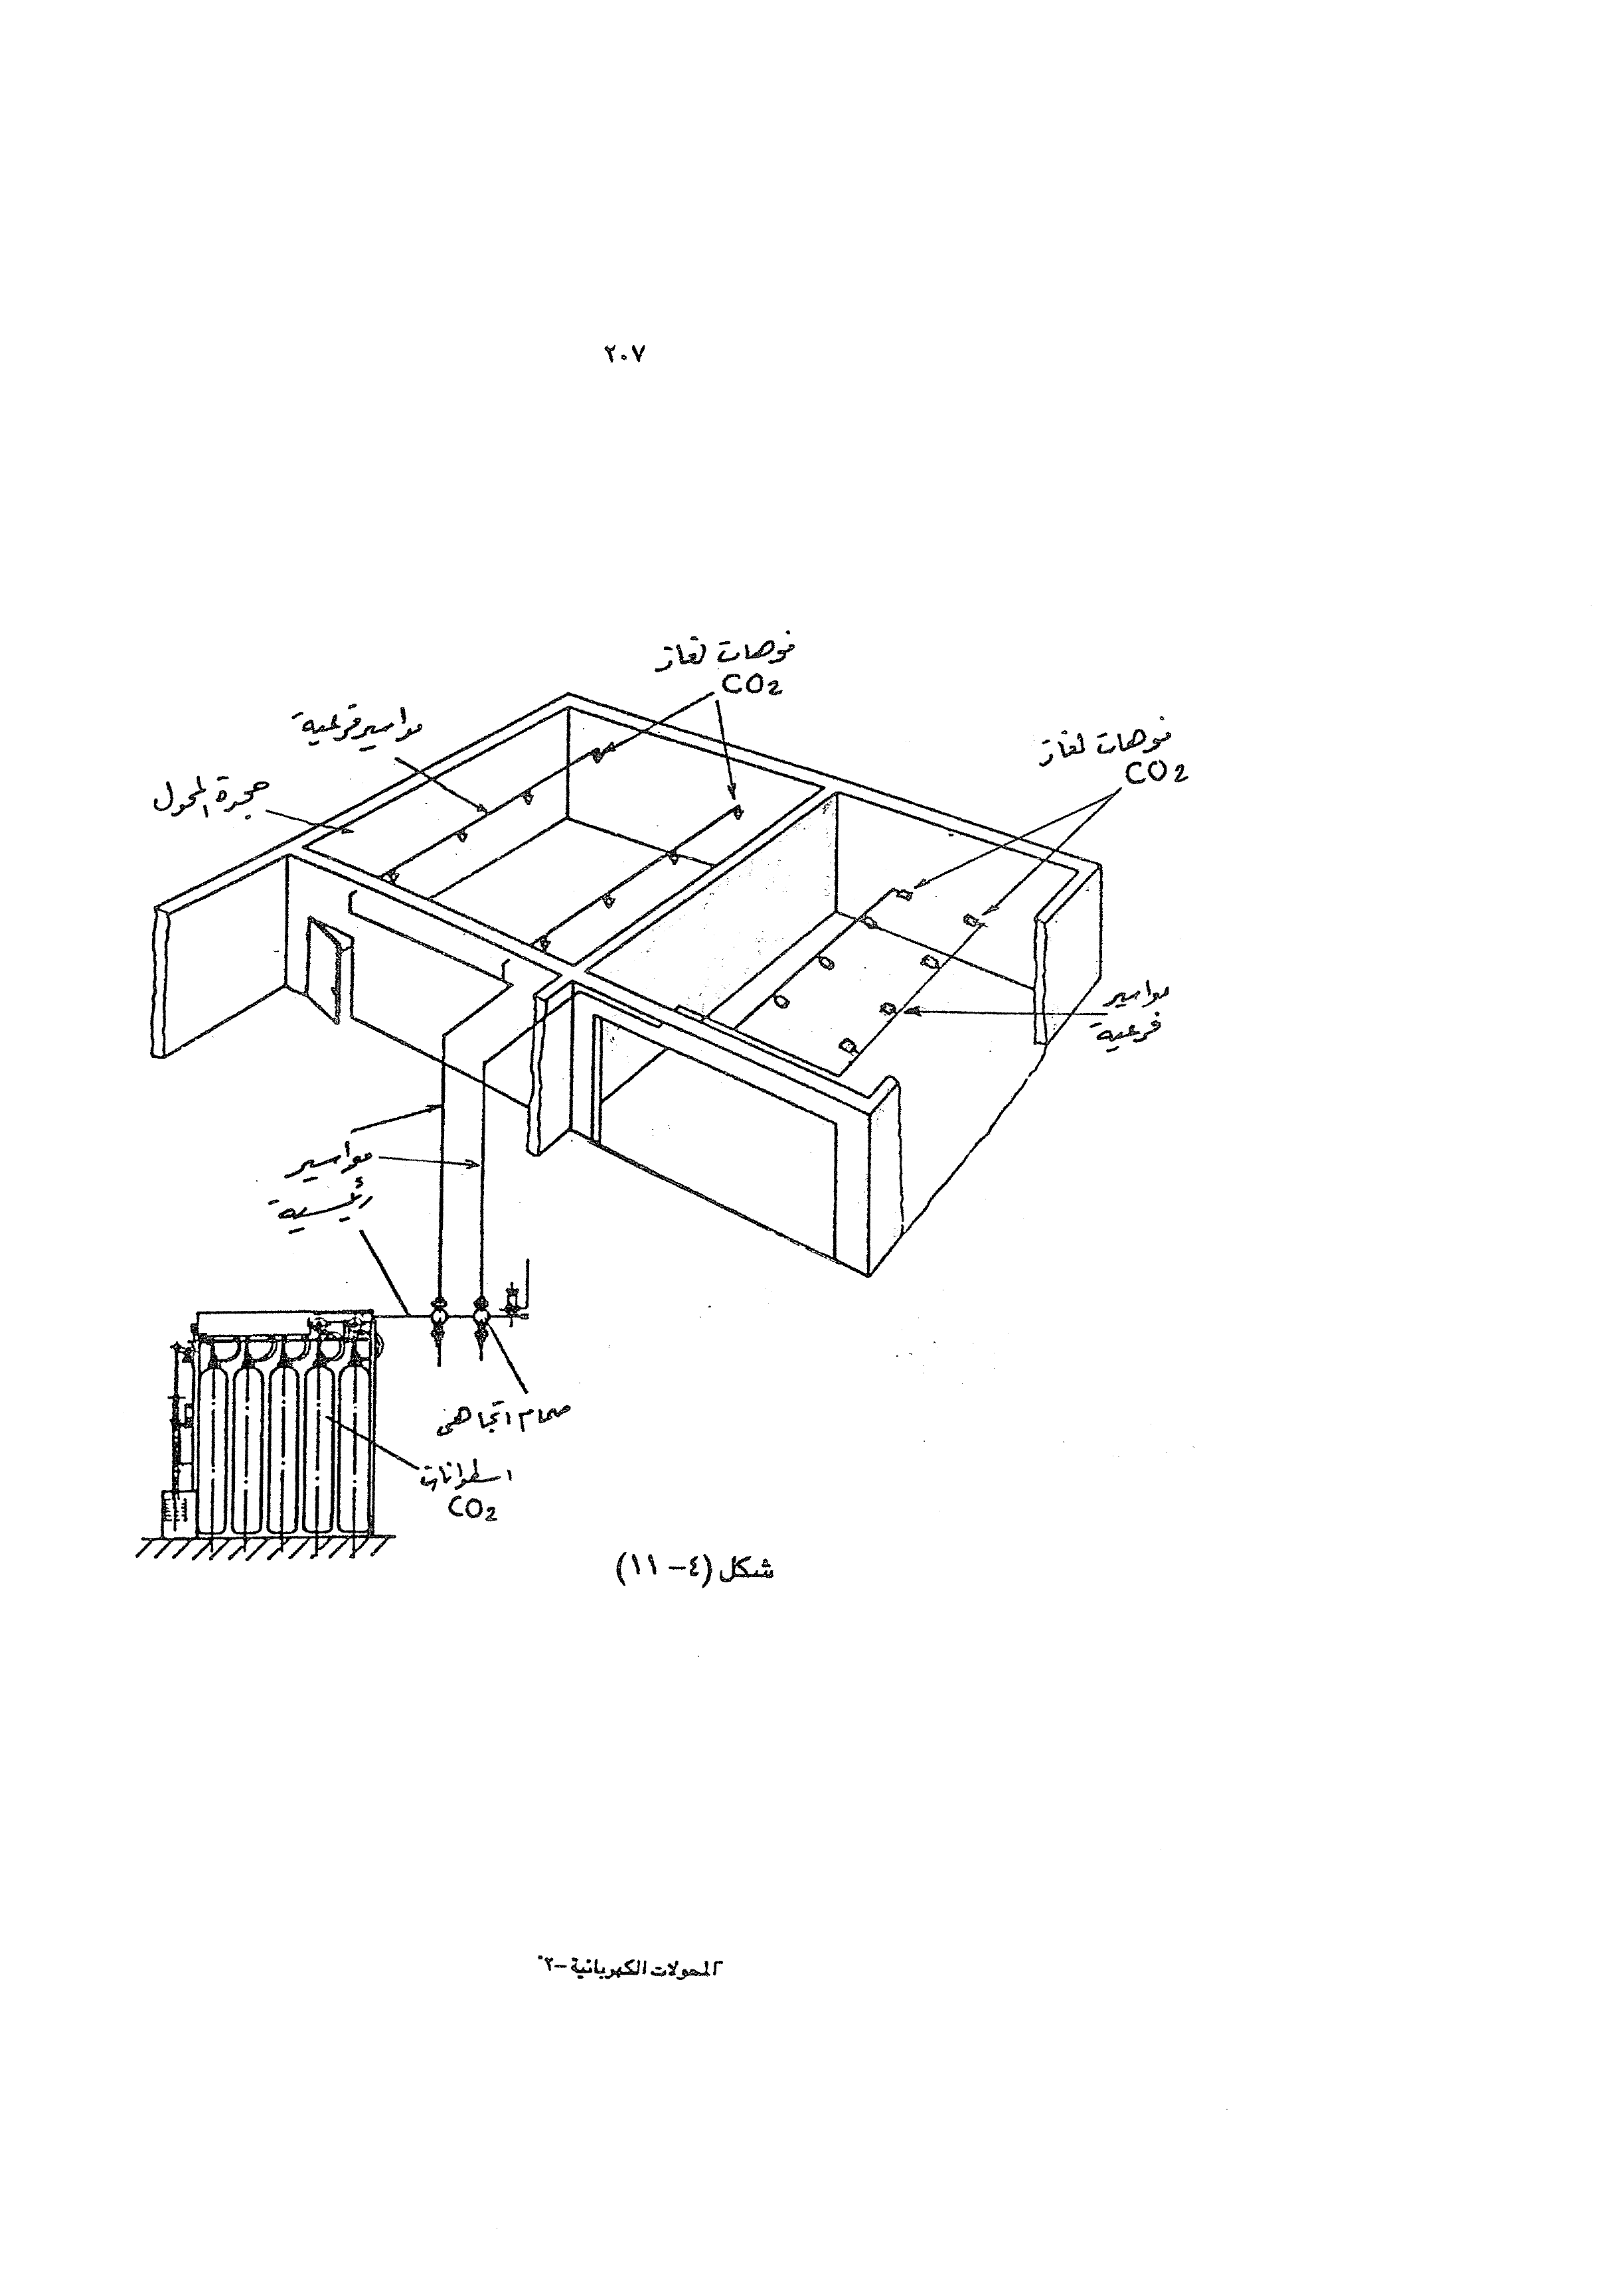 ٢٠٧
فوهات لغاز
CO2
مواسير فرعية
حجرة المحول
فوهات لغاز
CO2
مواسير
فرعية
مواسير
رئيسية
صمام اتجاهى
اسطوانات
CO2
شكل (٤-١١)
المحولات الكهربائية-٢٠